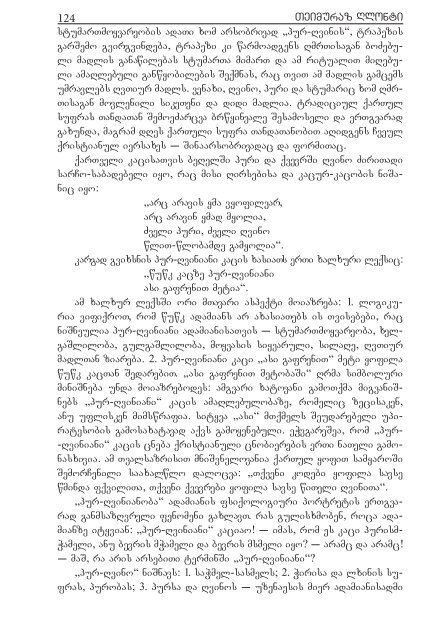 124 თეიმურაზ ღლონტი
სტუმართმოყვარეობის ადათი ხომ არსობრივად „პურ-ღვინის“, ტრაპეზის
გარშემო გვირგვინდება, ტრაპეზი კი წარმოადგენს ღმრთისაგან ბოძებუ-
ლი მადლის განაწილებას სტუმართა მიმართ და ამ რიტუალით მიღებუ-
ლი ამაღლებული განწყობილების შექმნას, რაც თვით ამ მადლის გამცემს
უმრავლებს ღვთიურ მადლს. ვენახი, ღვინო, პური და სტუმარიც ხომ ღმრ-
თისაგან მოვლენილი სიკეთენი და დიდი მადლია. ტრადიციულ ქართულ
სუფრას თანდათან შემოეძარცვა ბრწყინვალე შესამოსელი და ერთგვარად
გახუნდა, მაგრამ დღეს ქართული სუფრა თანდათანობით აღიდგენს ჩვეულ
ქრისტიანულ იერსახეს — შინაარსობრივადაც და ფორმითაც.
ქართველი კაცისათვის ბეღელში პური და ქვევრში ღვინო ძირითადი
სარჩო-საბადებელი იყო, რაც მისი ღირსებისა და კაცურ-კაცობის ნიშა-
ნიც იყო:
„არც არავის ყმა ვყოფილვარ,
არც არავინ ყმად მყოლია,
ძველი პური, ძველი ღვინო
წლით-წლობამდე გამყოლია“.
კარგად გვიხსნის პურ-ღვინიანი კაცის ხასიათს ერთი ხალხური ლექსიც:
„წუწკ კაცზე პურ-ღვინიანი
ასი გაფრენით მეტია“.
ამ ხალხურ ლექსში ორი მთავარი ასპექტი მოიაზრება: 1. ლოგიკუ-
რია ვიფიქროთ, რომ წუწკ ადამიანს არ ახასიათებს ის თვისებები, რაც
ნიშნეულია პურ-ღვინიანი ადამიანისათვის — სტუმართმოყვარეობა, ხელ-
გაშლილობა, გულგაშლილობა, მოყვასის სიყვარული, სილაღე, ღვთიურ
მადლთან ზიარება. 2. პურ-ღვინიანი კაცი „ასი გაფრენით“ მეტი ყოფილა
წუწკ კაცთან შედარებით. „ასი გაფრენით მეტობაში“ ღრმა სიმბოლური
მინიშნება უნდა მოიაზრებოდეს: ამგვარი ხატოვანი გამოთქმა მიგვანიშ-
ნებს „პურ-ღვინიანი“ კაცის ამაღლებულობაზე, რომელიც ზეცისაკენ,
ანუ უფლისკენ მიმსწრაფია. სიტყვა „ასი“ მთქმელს შეუდარებელი უპი-
რატესობის გამოსახატავად აქვს გამოყენებული. ეჭვგარეშეა, რომ „პურ-
-ღვინიანი“ კაცის ცნება ქრისტიანული ცნობიერების ერთი ნათელი გამო-
ნასხივია. ამ თვალსაზრისით მნიშვნელოვანია ქართულ ყოფით სამყაროში
შემორჩენილი საახალწლო დალოცვა: „თქვენი კოდები ყოფილა სავსე
წმინდა ფქვილითა, თქვენი ქვევრები ყოფილა სავსე წითელი ღვინითა“.
„პურ-ღვინიანობა“ ადამიანის ფსიქოლოგიური პორტრეტის ერთგვა-
რად განმსაზღვრელი ფენომენი გახლავთ. რას გულისხმობენ, როცა ადა-
მიანზე იტყვიან: „პურ-ღვინიანი“ კაციაო! — იმას, რომ ეს კაცი პურისმ-
ჭამელი, ანუ ბევრის მჭამელი და ბევრის მსმელი იყო? — არამც და არამც!
— მაშ, რა არის არსებითი ტერმინში „პურ-ღვინიანი“?
„პურ-ღვინო“ ნიშნავს: 1. საჭმელ-სასმელს; 2. ჭირისა და ლხინის სუ-
ფრას, პურობას; 3. პურსა და ღვინოს — უზენაესის მიერ ადამიანისადმი